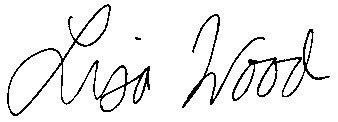 Lisa Wood